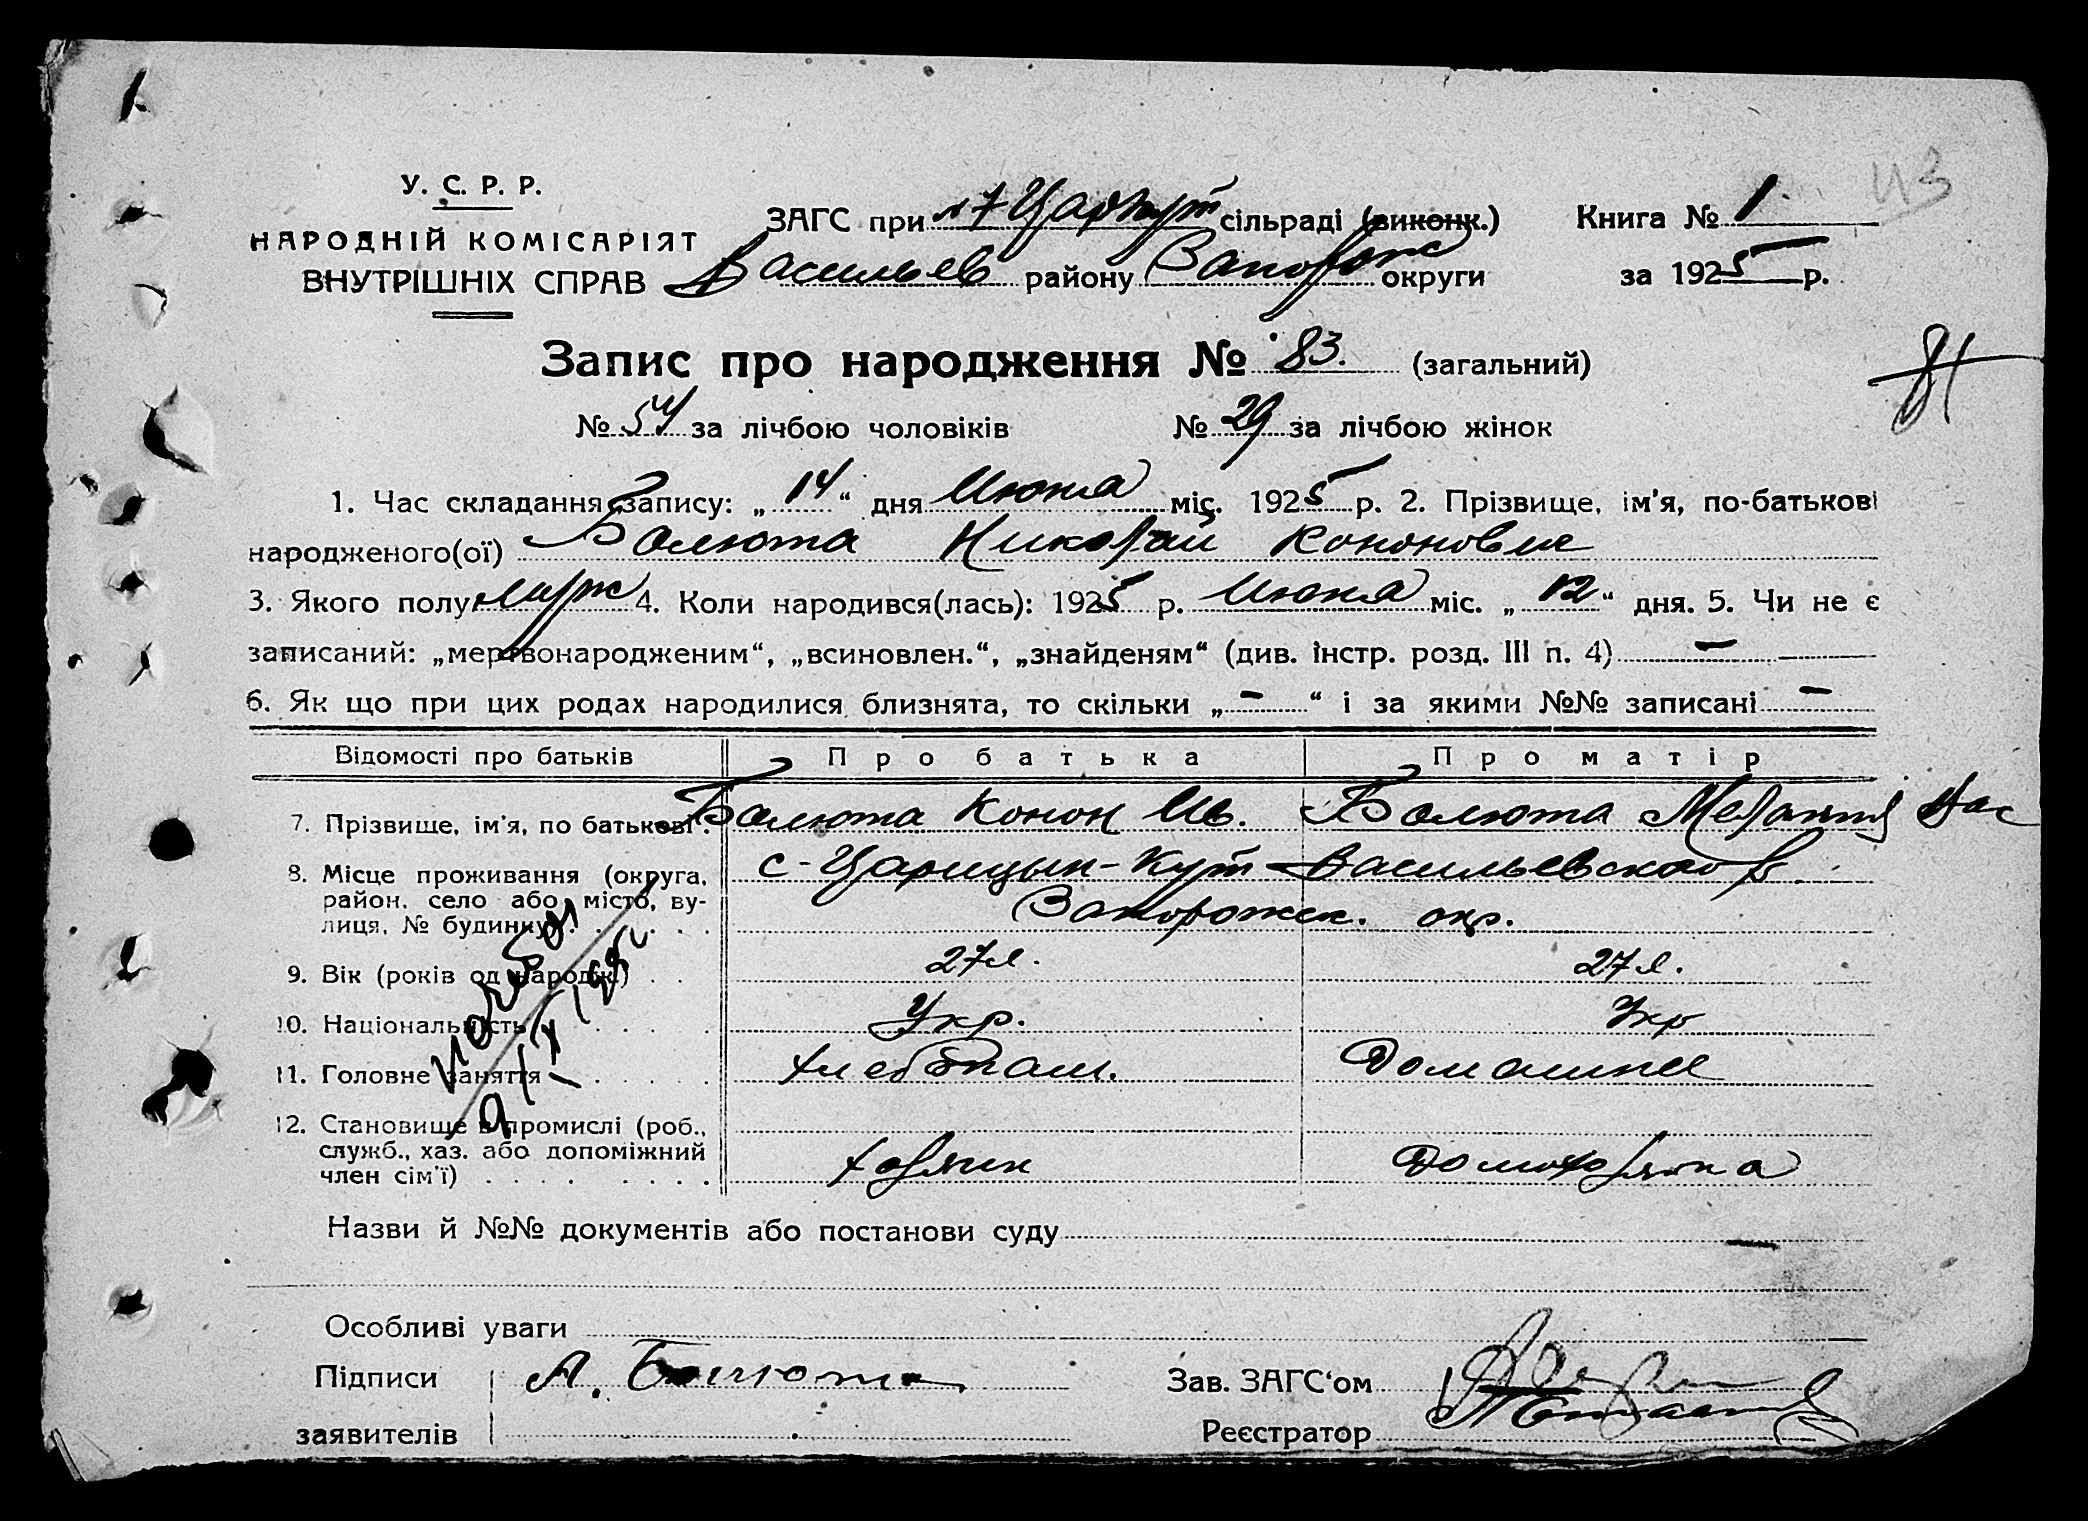 43
У. С. Р. Р.
НАРОДНІЙ КОМІСАРІЯТ
ВНУТРІШНІХ СПРАВ
ЗАГС при №7 Царкут сільраді (виконк.) Книга № 1
Васильев району Запорож округи за 1925 р.
Запис про народження № 83. (загальний)
81
№ 54 за лічбою чоловіків № 29 за лічбою жінок
1. Час складання запису: „ 14 “ дня Июня міс. 1925 р. 2. Прізвище, ім'я, по-батькові
народженого(ої) Балюта Николай Кононович
3. Якого полу мурж 4. Коли народився(лась): 1925 р. Июня міс. „ 12 “ дня. 5. Чи не є
записаний: „мертвонародженим“, „всиновлен.“, „знайденям“ (див. інстр. розд. III п. 4) —
6. Як що при цих родах народилися близнята, то скільки „ — “ і за якими №№ записані —
Відомості про батьків Про батька Про матір
7. Прізвище, ім'я, по батькові . Балюта Конон Ив. Балюта Мелания Вас
8. Місце проживання (округа, район, село або місто, вулиця, № будинку) . . . . . с-Царицын-Кут Васильевского р
Запорожск. окр.
9. Вік (років од народж.) . . 27 л. 27 л.
10. Національність . . . . . Укр. Укр
11. Головне заняття . . . . . Хлебопаш. Домашнее
12. Становище в промислі (роб., служб., хаз. або допоміжний член сім'ї) . . . . . . . . Хозяин Домохозяйка
Назви й №№ документів або постанови суду —
Особливі уваги
Підписи А. Балюта Зав. ЗАГС‘ом
заявителів Реєстратор